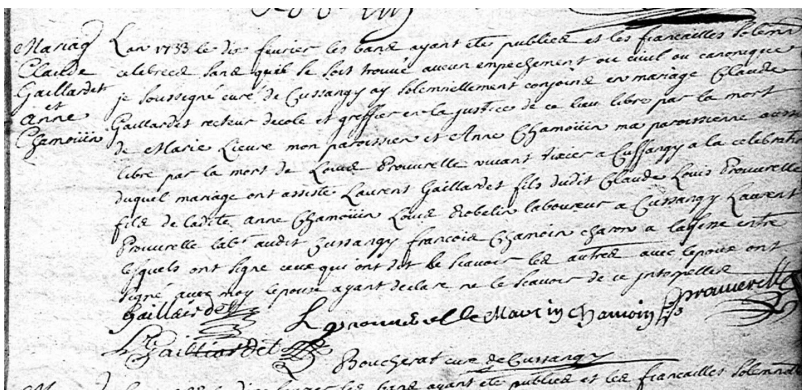 Mariag
Claude
Gaillardet
et
anne
Chamoüin
Lan 1733 le dix fevrier les band ayant ete publied et les fiancailles solemn
celebreed sand quil se soit trouvé aucun empechement ou civil ou canonique
je soussigné curé de Cussangy ay solemnellement conjoind en mariage Claude
Gaillardet recteur decole et greffier en la justice de ce lieu libre par la mort
de Marie Lieure mon paroissien et Anne Chamoüin ma paroissienne aussi
libre par la mort de Louid Prouverelle vivant a Cussangy a la celebration
duquel mariage ont assiste Laurent Gaillardet fils dudit Claude Louis Prouverelle
fild de ladite anne Chamoüin Louid Robelin laboureur a Cussangy Laurent
Prouverelle lab. audit Cussangy francois Chamoin charon a entre
lesquels ont signe ceux qui ont dit le scavoir led autred avec lepoux ont
signé avec moy lepouse ayant declare ne le scavoir de ce interpellee
Gaillardet L prouverelle Maurin Chamoin prouverelle
L Gailliardet
Boucherat curé de Cussangy
les band ayant eté publied et led fiancailles solemnel